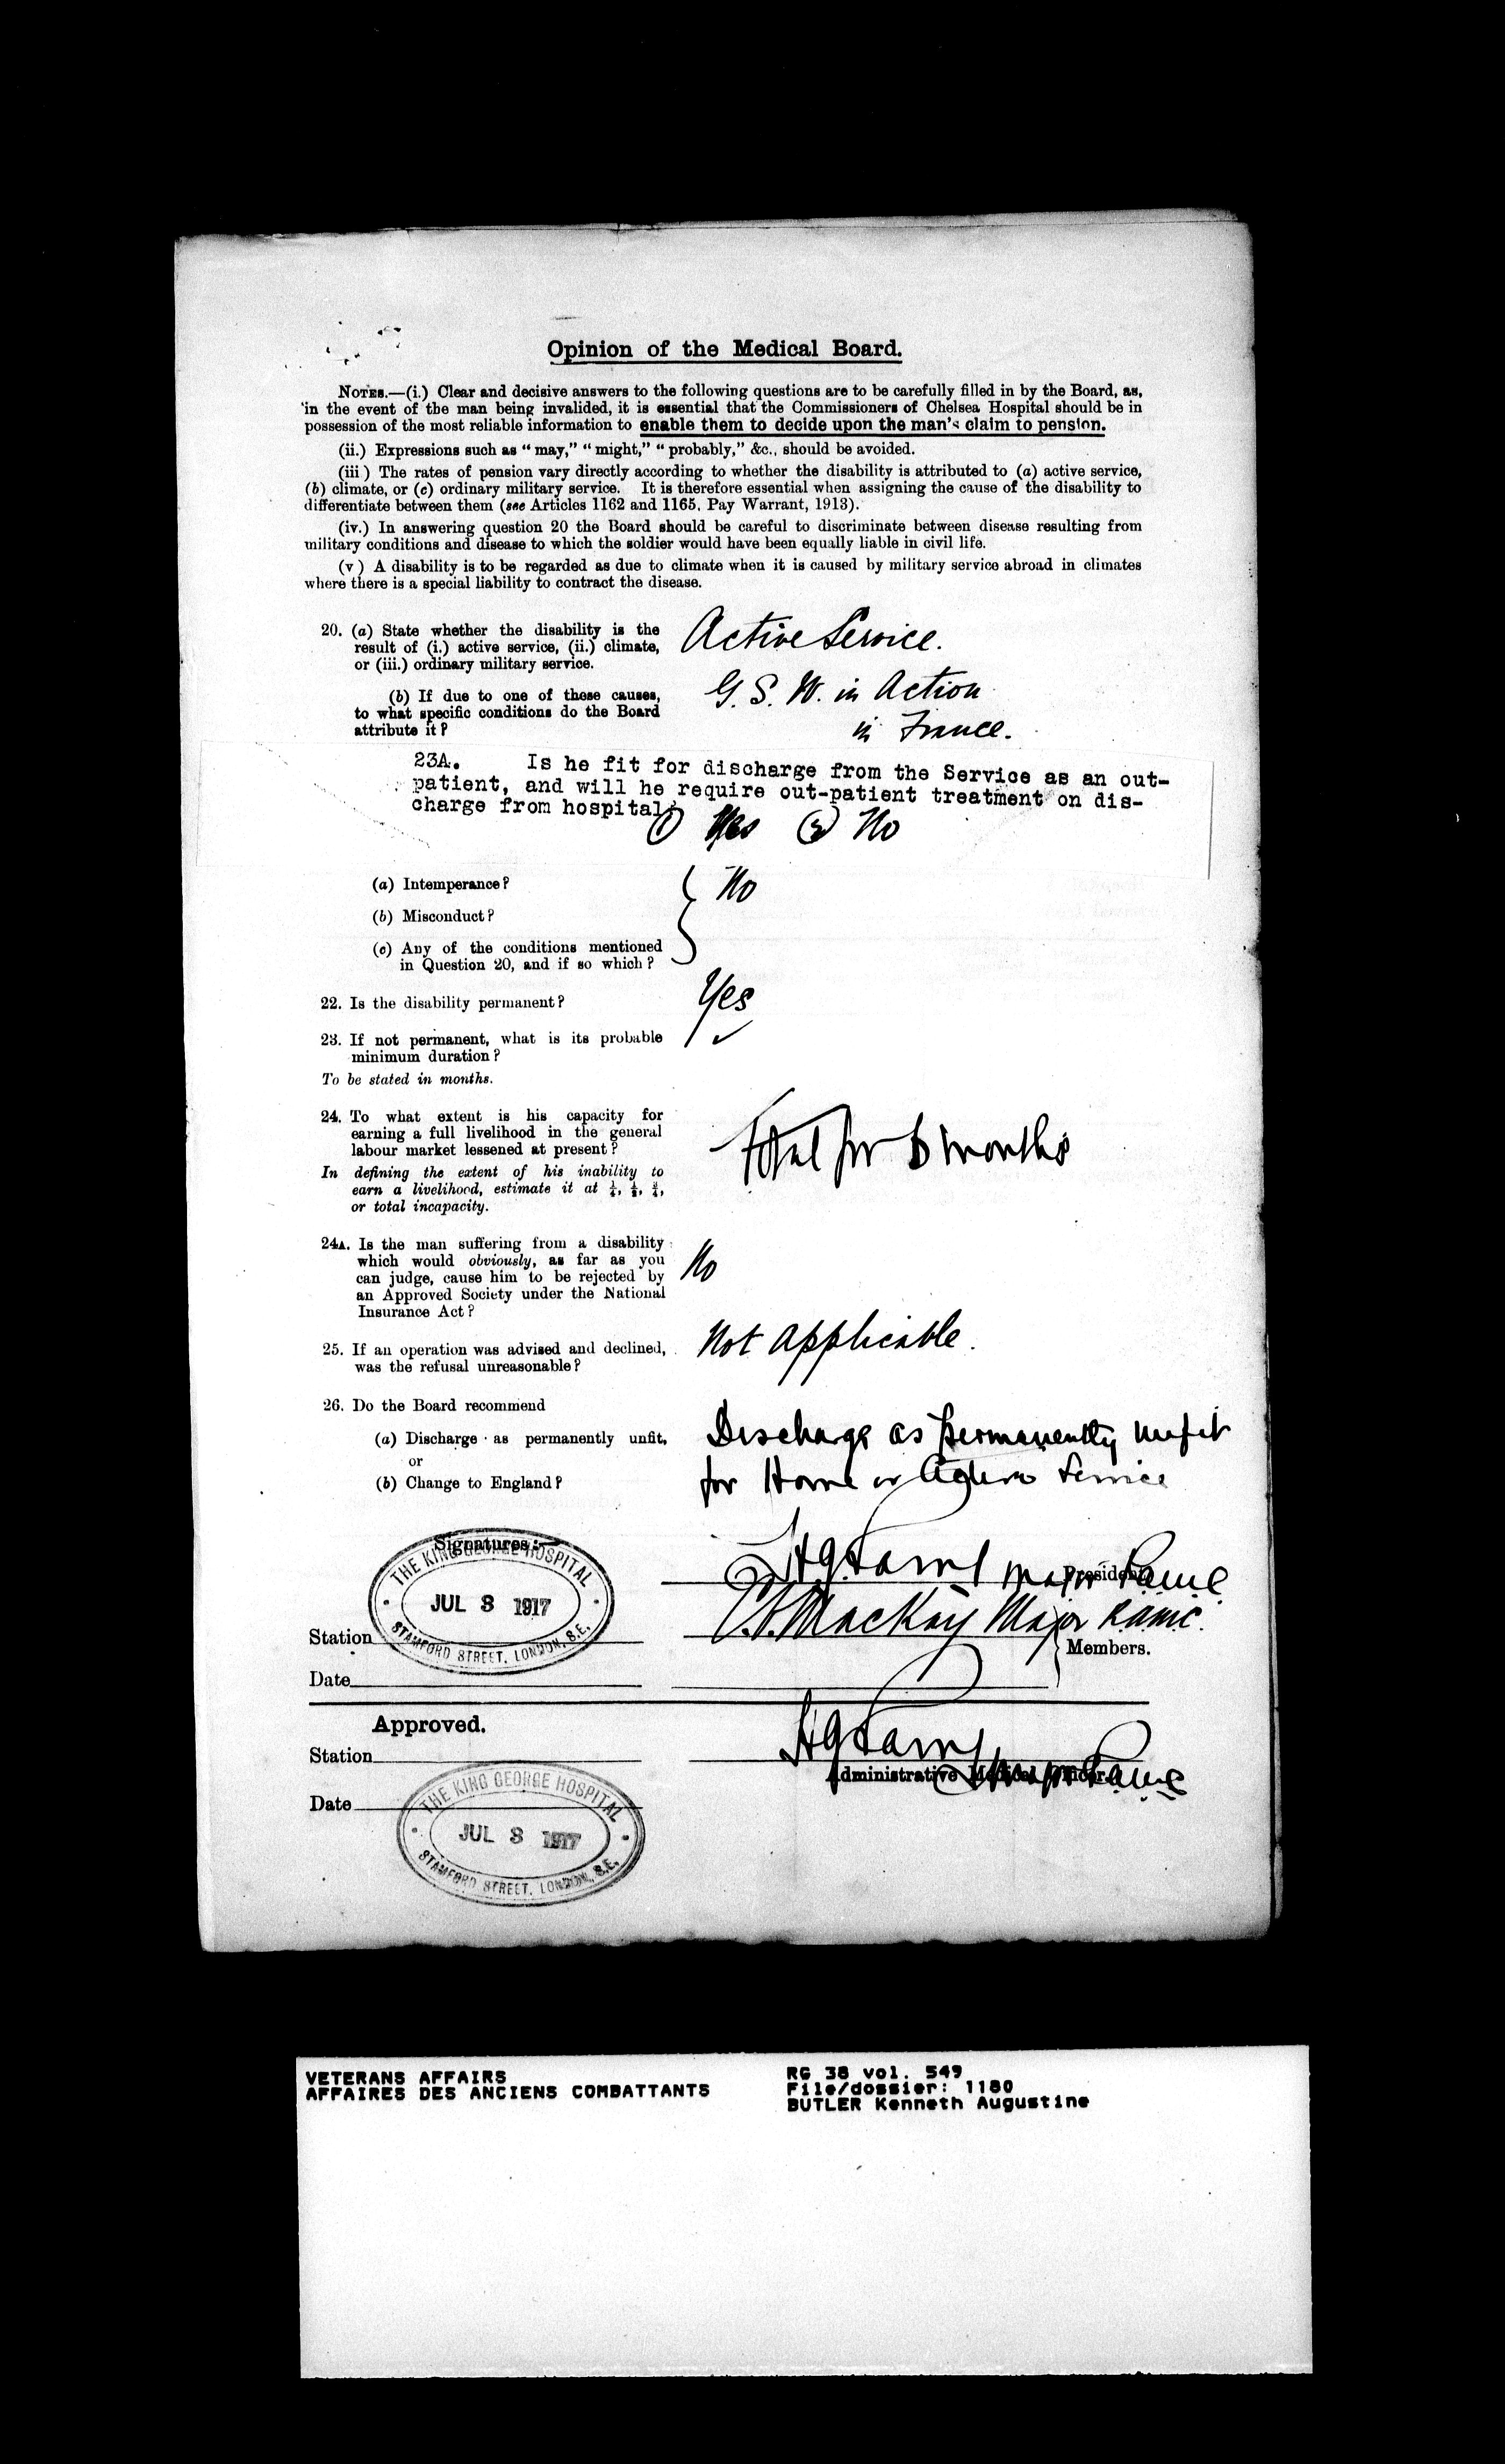 Opinion of the Medical Board.
NOTES.—(i.) Clear and decisive answers to the following questions are to be carefully filled in by the Board, as,
in the event of the man being invalided, it is essential that the Commissioners of Chelsea Hospital should be in
possession of the most reliable information to enable them to decide upon the man's claim to pension.
(ii.) Expressions such as "may," "might," "probably," &c., should be avoided.
(iii) The rates of pension vary directly according to whether the disability is attributed to (a) active service,
(b) climate, or (c) ordinary military service. It is therefore essential when assigning the cause of the disability to
differentiate between them (see Articles 1162 and 1165, Pay Warrant, 1913).
(iv.) In answering question 20 the Board should be careful to discriminate between disease resulting from
military conditions and disease to which the soldier would have been equally liable in civil life.
(v) A disability is to be regarded as due to climate when it is caused by military service abroad in climates
where there is a special liability to contract the disease.
20. (a) State whether the disability is the
result of (i.) active service, (ii.) climate,
or (iii.) ordinary military service.
Active Service.
(b) If due to one of these causes,
to what specific conditions do the Board
attribute it?
G. S. W. in Action
in France.
23A. Is he fit for discharge from the Service as an out-
patient, and will he require out-patient treatment on dis-
charge from hospital?
(1) Yes (2) No
(a) Intemperance?
(b) Misconduct?
(c) Any of the conditions mentioned
in Question 20, and if so which?
No
22. Is the disability permanent?
Yes
23. If not permanent, what is its probable
minimum duration?
To be stated in months.
24. To what extent is his capacity for
earning a full livelihood in the general
labour market lessened at present?
In defining the extent of his inability to
earn a livelihood, estimate it at ¼, ½, ¾,
or total incapacity.
Total for 6 months
24A. Is the man suffering from a disability
which would obviously, as far as you
can judge, cause him to be rejected by
an Approved Society under the National
Insurance Act?
No
25. If an operation was advised and declined,
was the refusal unreasonable?
Not applicable.
26. Do the Board recommend
(a) Discharge as permanently unfit,
or
(b) Change to England?
Discharge as permanently unfit
for Home or Active Service
Signatures:—
THE KING GEORGE HOSPITAL
JUL 3 1917
STAMFORD STREET, LONDON, S.E.
Major
President.
MacKay Major RAMC.
Station
Members.
Date
Approved.
Station
Administrative Medical Officer.
Major
Date
THE KING GEORGE HOSPITAL
JUL 3 1917
STAMFORD STREET, LONDON, S.E.
VETERANS AFFAIRS
AFFAIRES DES ANCIENS COMBATTANTS
RG 38 vol. 549
File/dossier: 1180
BUTLER Kenneth Augustine